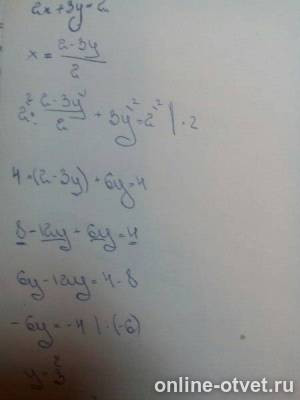 2x+3y=2
x = (2-3y)/2
2² · (2-3y)/2 + 3y² = 2² | · 2
4 · (2-3y) + 6y = 4
8 - 12y + 6y = 4
6y - 12y = 4 - 8
-6y = -4 | · (-6)
y =
online-otvet.ru